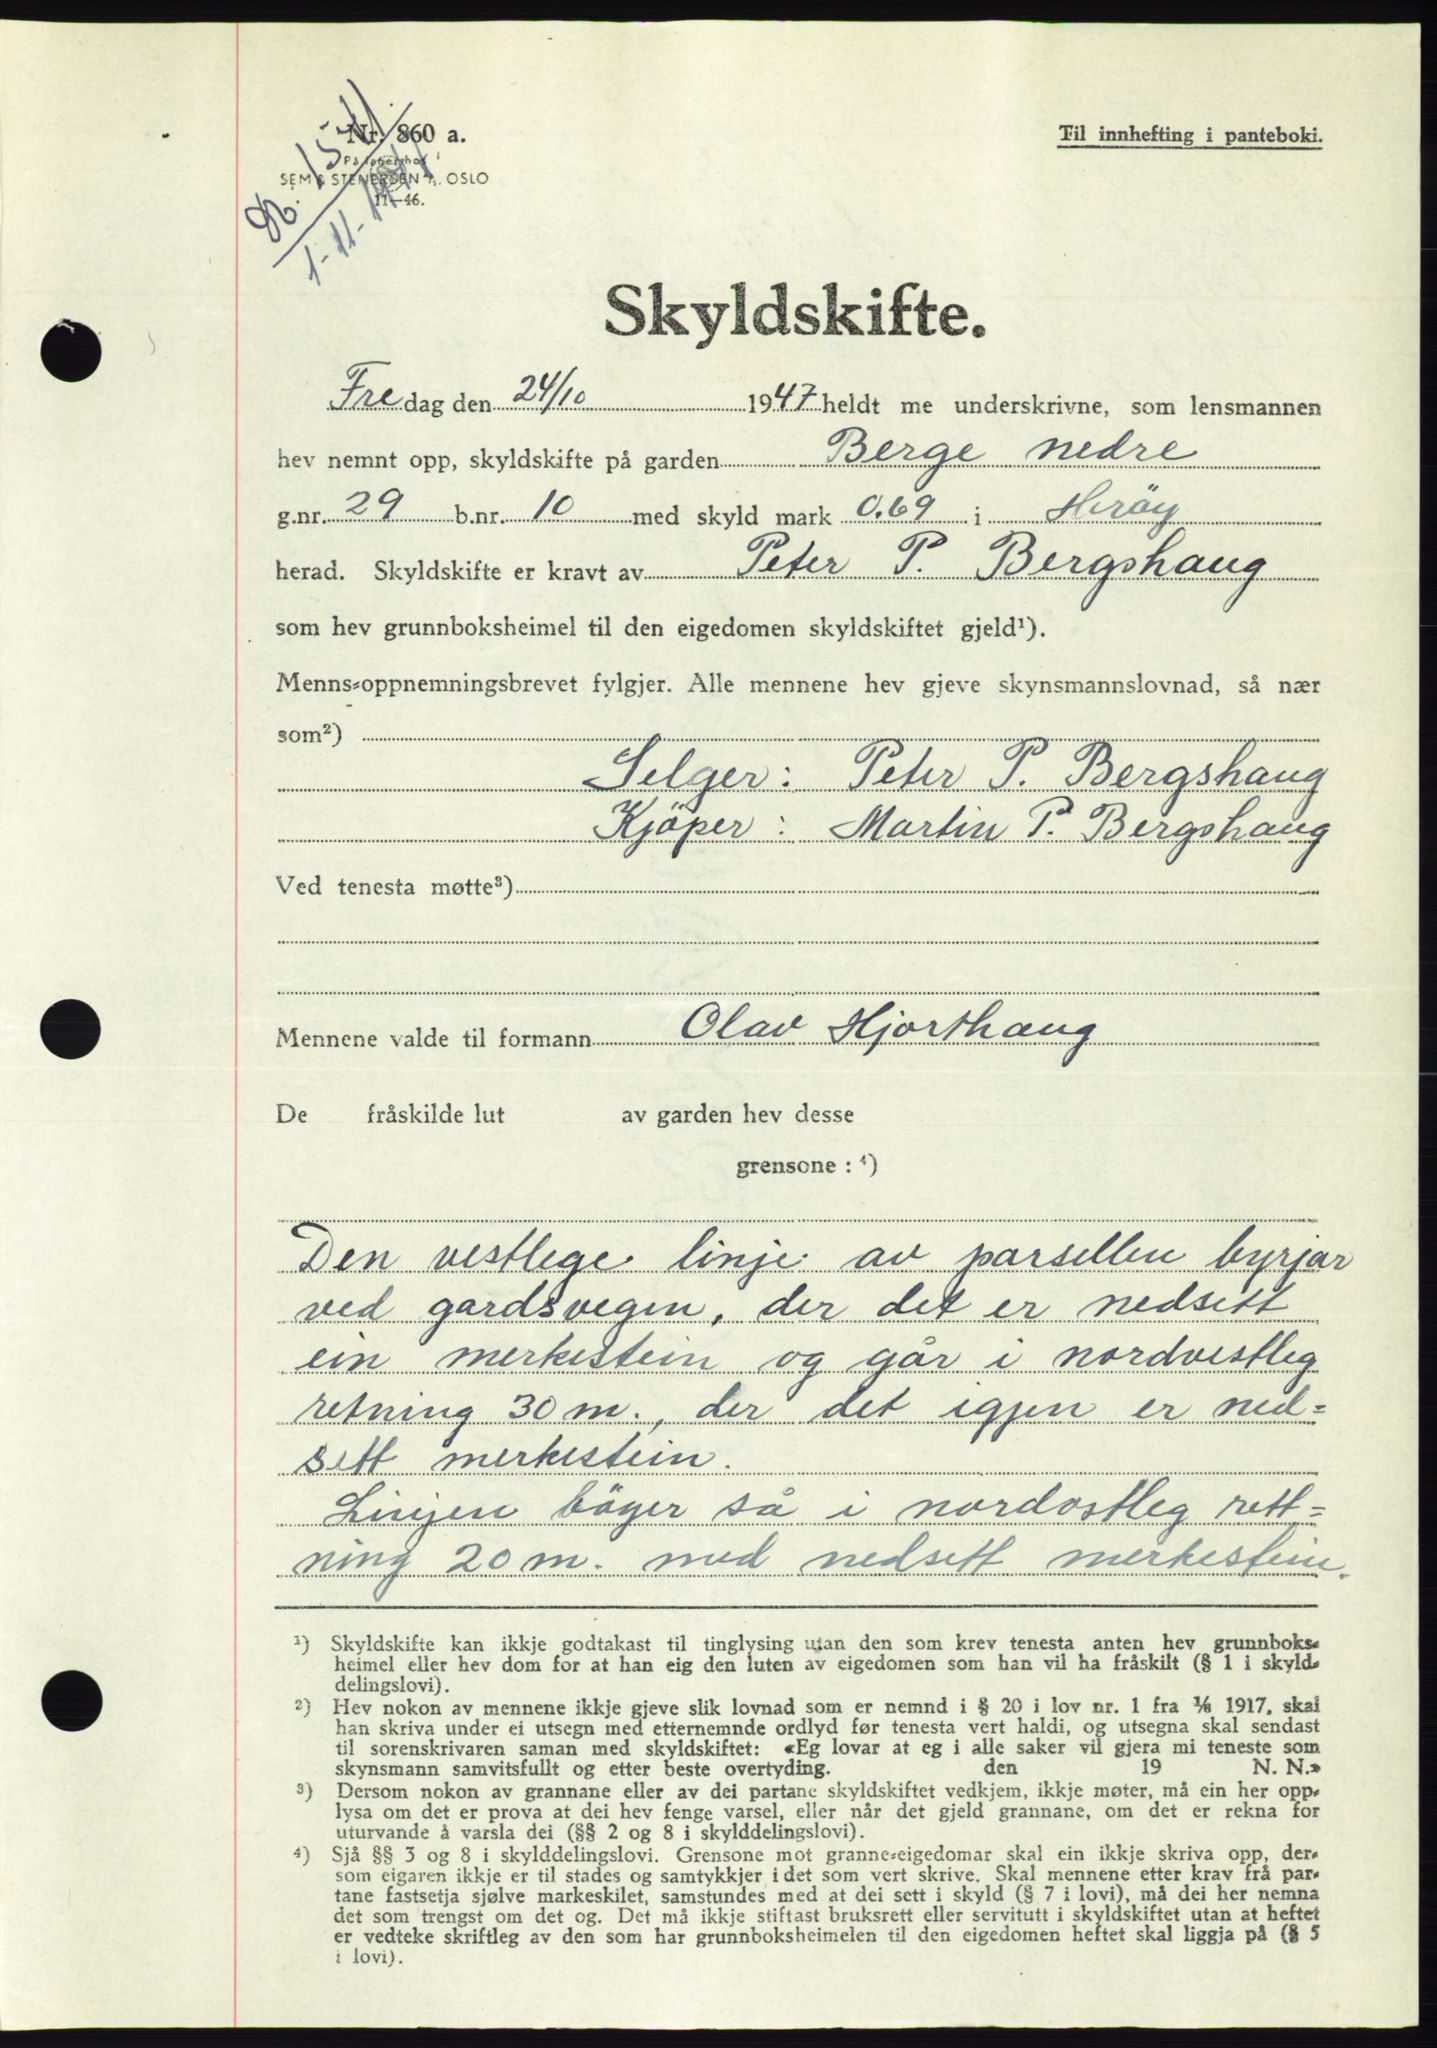 Nr. 860 a.
SEM & STENERSEN A/S, OSLO
11—46.
1-11-
Til innhefting i panteboki.
Skyldskifte.
Fredag den 24/10 1947 heldt me underskrivne, som lensmannen
hev nemnt opp, skyldskifte på garden Berge nedre
g.nr. 29 b.nr. 10 med skyld mark 0.69 i Heröy
herad. Skyldskifte er kravt av Peter P. Bergshaug
som hev grunnboksheimel til den eigedomen skyldskiftet gjeld¹).
Menns-oppnemningsbrevet fylgjer. Alle mennene hev gjeve skynsmannslovnad, så nær
som²)
Selger: Peter P. Bergshaug
Kjöper: Martin P. Bergshaug
Ved tenesta møtte³)
Mennene valde til formann Olav Hjorthaug
De fråskilde lut av garden hev desse
grensone: ⁴)
Den vestlege linje av parsellen byrjar
ved gardsvegen, der det er nedsett
ein merkestein og går i nordvestleg
retning 30 m., der det igjen er ned=
sett merkestein.
Linjen böger så i nordostleg rett=
ning 20 m. med nedsett merkestein.
¹) Skyldskifte kan ikkje godtakast til tinglysing utan den som krev tenesta anten hev grunnboks-
heimel eller hev dom for at han eig den luten av eigedomen som han vil ha fråskilt (§ 1 i skyld-
delingslovi).
²) Hev nokon av mennene ikkje gjeve slik lovnad som er nemnd i § 20 i lov nr. 1 fra 1/6 1917, skal
han skriva under ei utsegn med etternemnde ordlyd før tenesta vert haldi, og utsegna skal sendast
til sorenskrivaren saman med skyldskiftet: «Eg lovar at eg i alle saker vil gjera mi teneste som
skynsmann samvitsfullt og etter beste overtyding. den 19 N. N.»
³) Dersom nokon av grannane eller av dei partane skyldskiftet vedkjem, ikkje møter, må ein her opp-
lysa om det er prova at dei hev fenge varsel, eller når det gjeld grannane, om det er rekna for
uturvande å varsla dei (§§ 2 og 8 i skylddelingslovi).
⁴) Sjå §§ 3 og 8 i skylddelingslovi. Grensone mot granne-eigedomar skal ein ikkje skriva opp, der-
som eigaren ikkje er til stades og samtykkjer i det som vert skrive. Skal mennene etter krav frå par-
tane fastsetja sjølve markeskilet, samstundes med at dei sett i skyld (§ 7 i lovi), må dei her nemna
det som trengst om det og. Det må ikkje stiftast bruksrett eller servitutt i skyldskiftet utan at heftet
er vedteke skriftleg av den som har grunnboksheimelen til den eigedomen heftet skal liggja på (§ 5
i lovi).